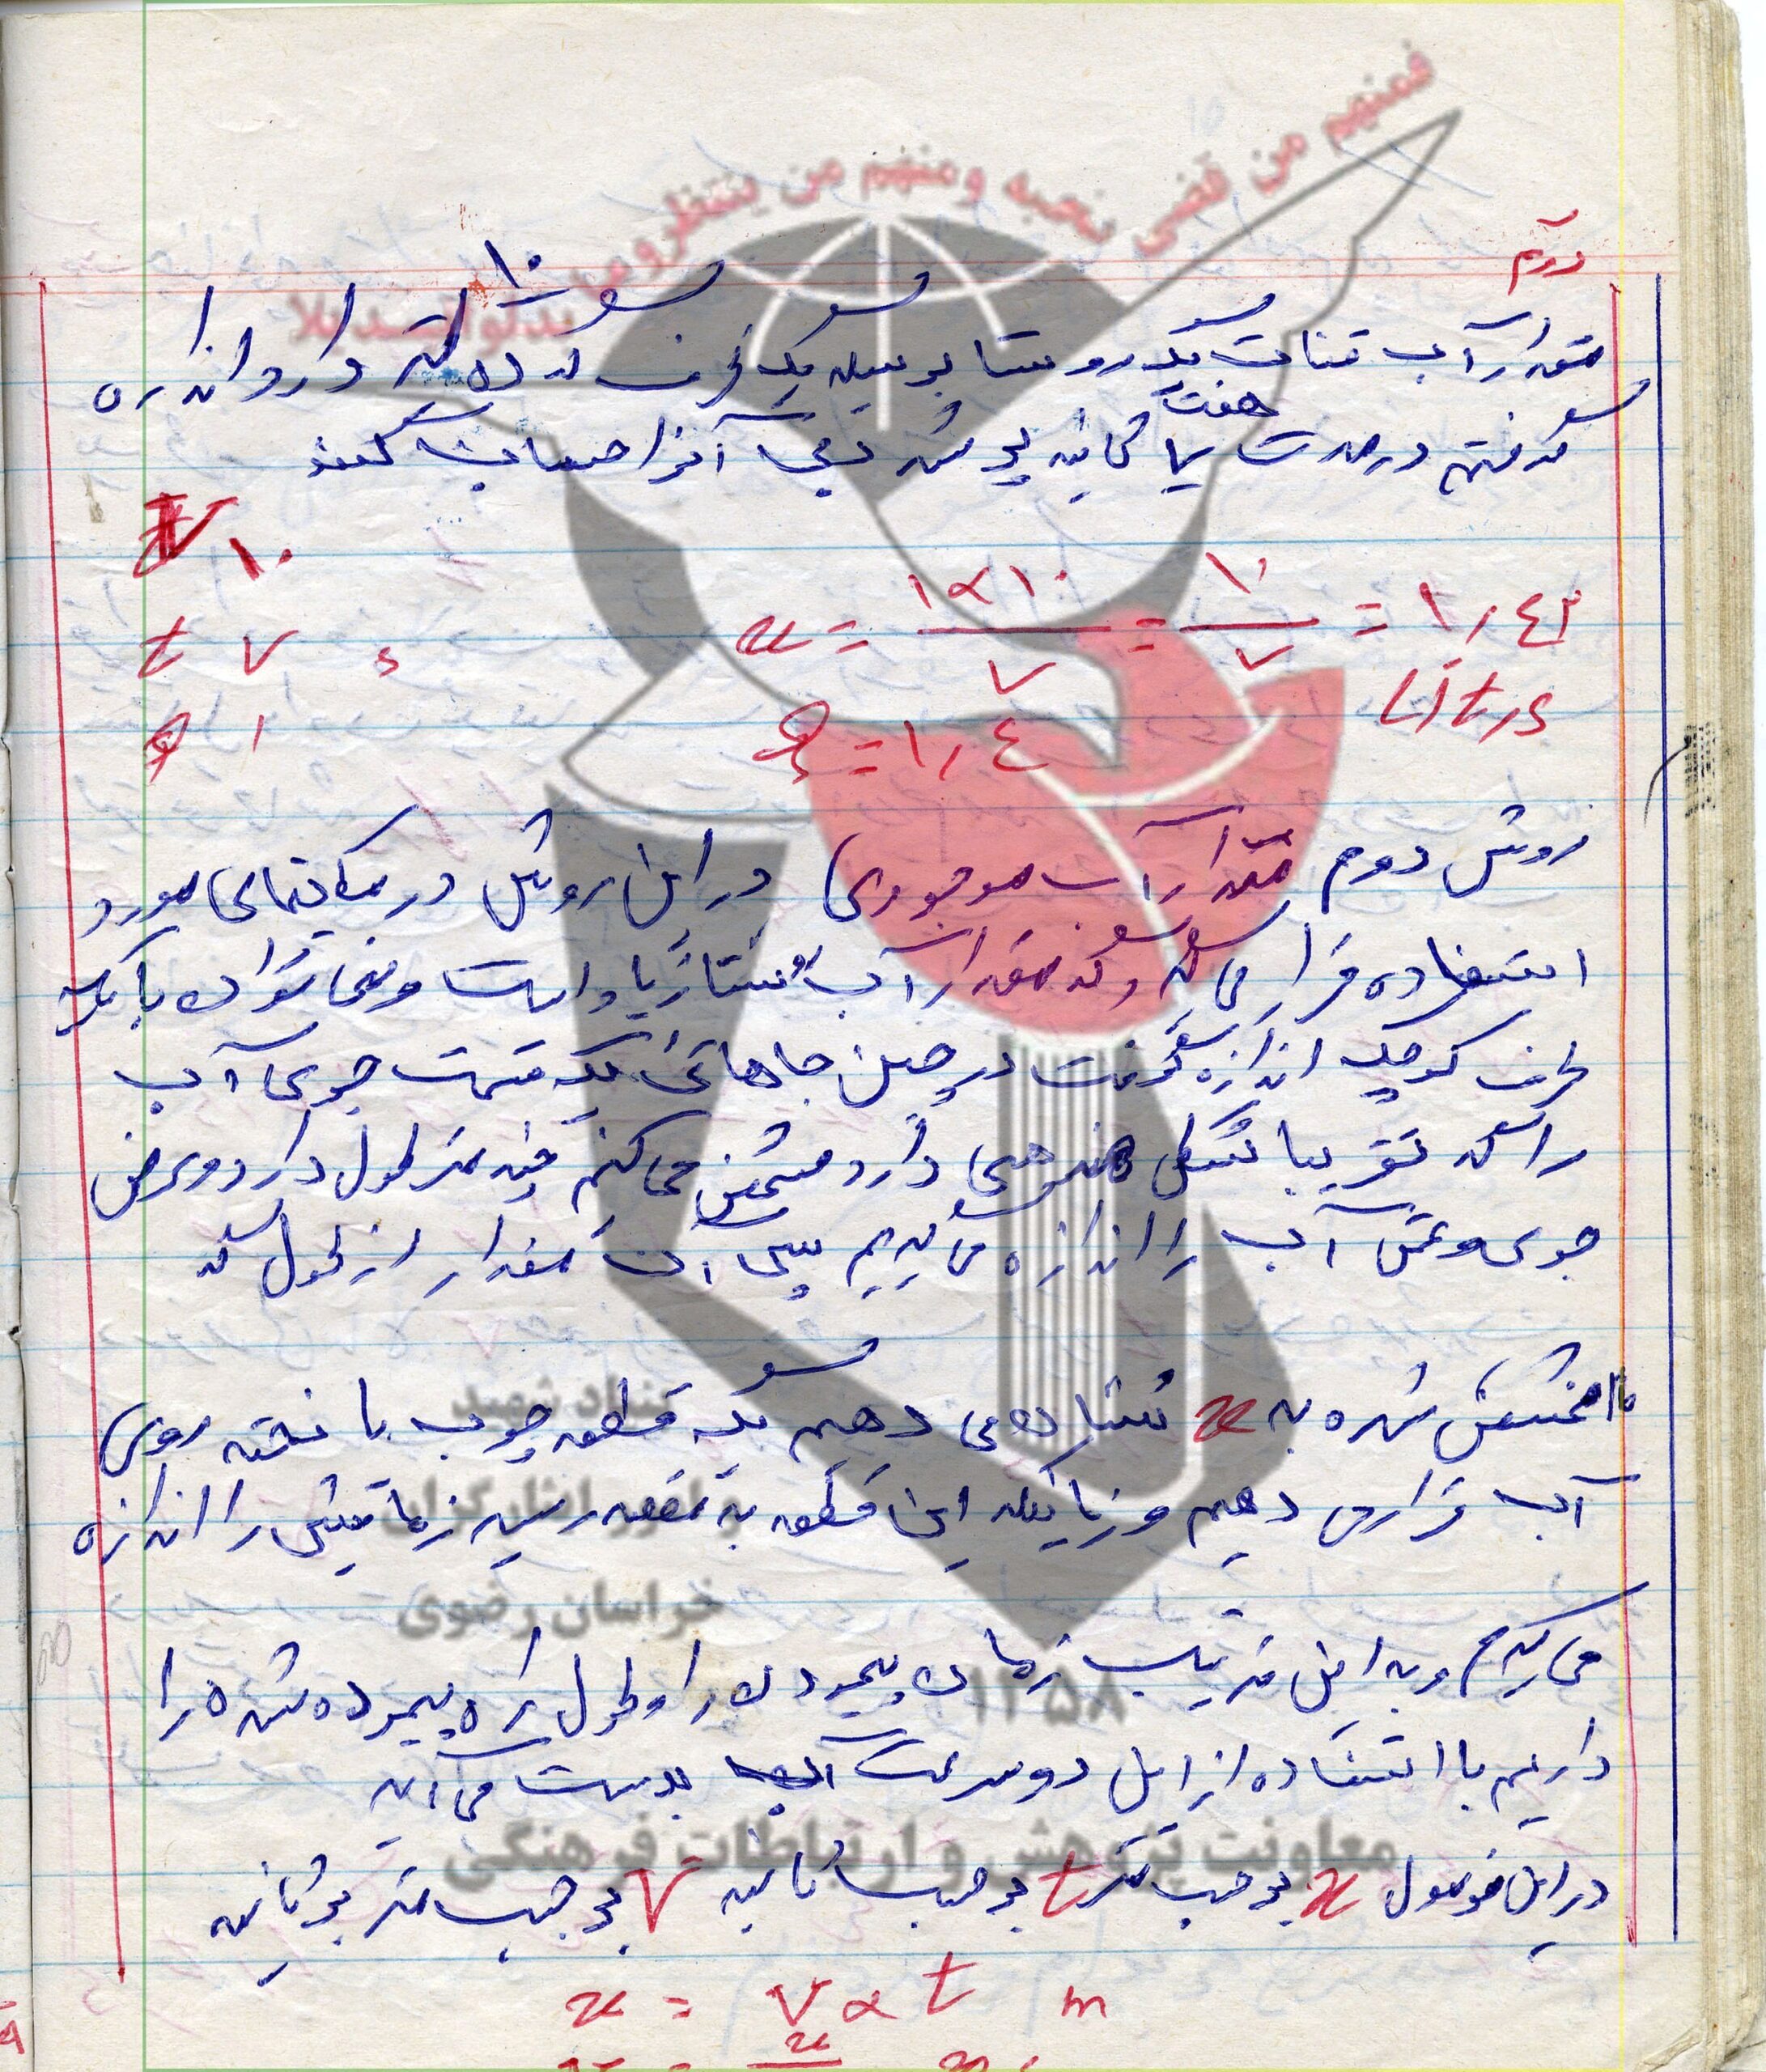 فمنهم من قضی نحبه ومنهم من ینتظر وما بدلوا تبدیلا
دوم
مقدار آب قنات یک روستا بوسیله یک ظرف که ۱۰ لیتر دارد اندازه
گرفتیم در مدت هفت ثانیه پر شد دبی آنرا حساب کنید
V ۱۰
x = ۱×۱۰ / ۷ = ۱۰ / ۷ = ۱٫٤۲
t ۷ s
Lit/s
q ۱
q = ۱٫٤
روش دوم مقدار آب موجودی) در این روش در مکانهای مورد
استفاده قرار می گیرد که مقدار آب نسبتا زیاد است و نمی توان با یک
ظرف کوچک اندازه گرفت در چنین جاهائی یک قسمت جوی آب
را که تقریبا شکل هندسی دارد مشخص می کنیم چند متر طول دارد و عرض
جوی و عمق آب را اندازه می گیریم سپس آن مقدار از طول که
مشخص شده به x نشان می دهیم یک قطعه چوب یا تخته روی
آب قرار می دهیم و زمانیکه این قطعه به نقطه رسید زمانش را اندازه
می گیریم و به این ترتیب زمان پیمودن را و طول راه پیموده شده را
داریم با استفاده از این دو سرعت آب بدست می آید
در این فرمول x بر حسب متر t بر حسب ثانیه V بر حسب متر بر ثانیه
x = V × t m
x
بنیاد شهید
و امور ایثارگران
خراسان رضوی
۱۳۵۸
معاونت پژوهش و ارتباطات فرهنگی